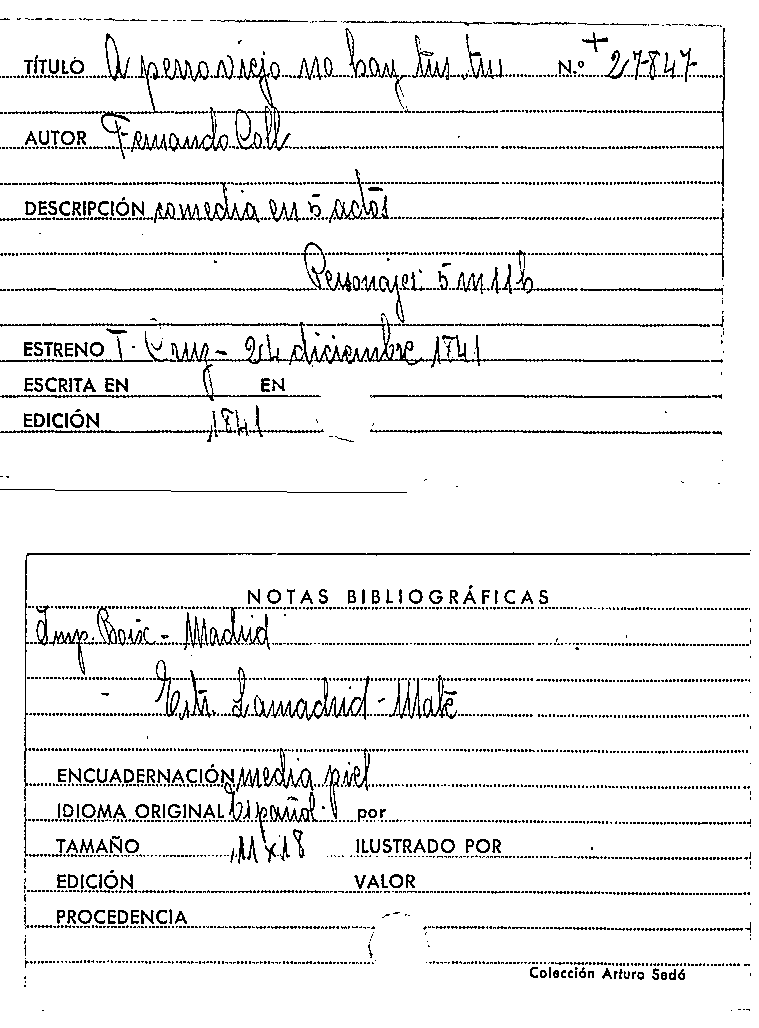 TÍTULO A perro viejo no hay tus, tus N.º + 27847
AUTOR Fernando Coll
DESCRIPCIÓN comedia en 5 actos
Personajes: 5 m 11 h
ESTRENO T. Cruz - 24 diciembre 1841
ESCRITA EN EN
EDICIÓN 1841
NOTAS BIBLIOGRÁFICAS
Imp. Boix - Madrid
- Estr. Lamadrid - Mate
ENCUADERNACIÓN media piel
IDIOMA ORIGINAL Español. por
TAMAÑO 11 x 18 ILUSTRADO POR
EDICIÓN VALOR
PROCEDENCIA
Colección Arturo Sedó